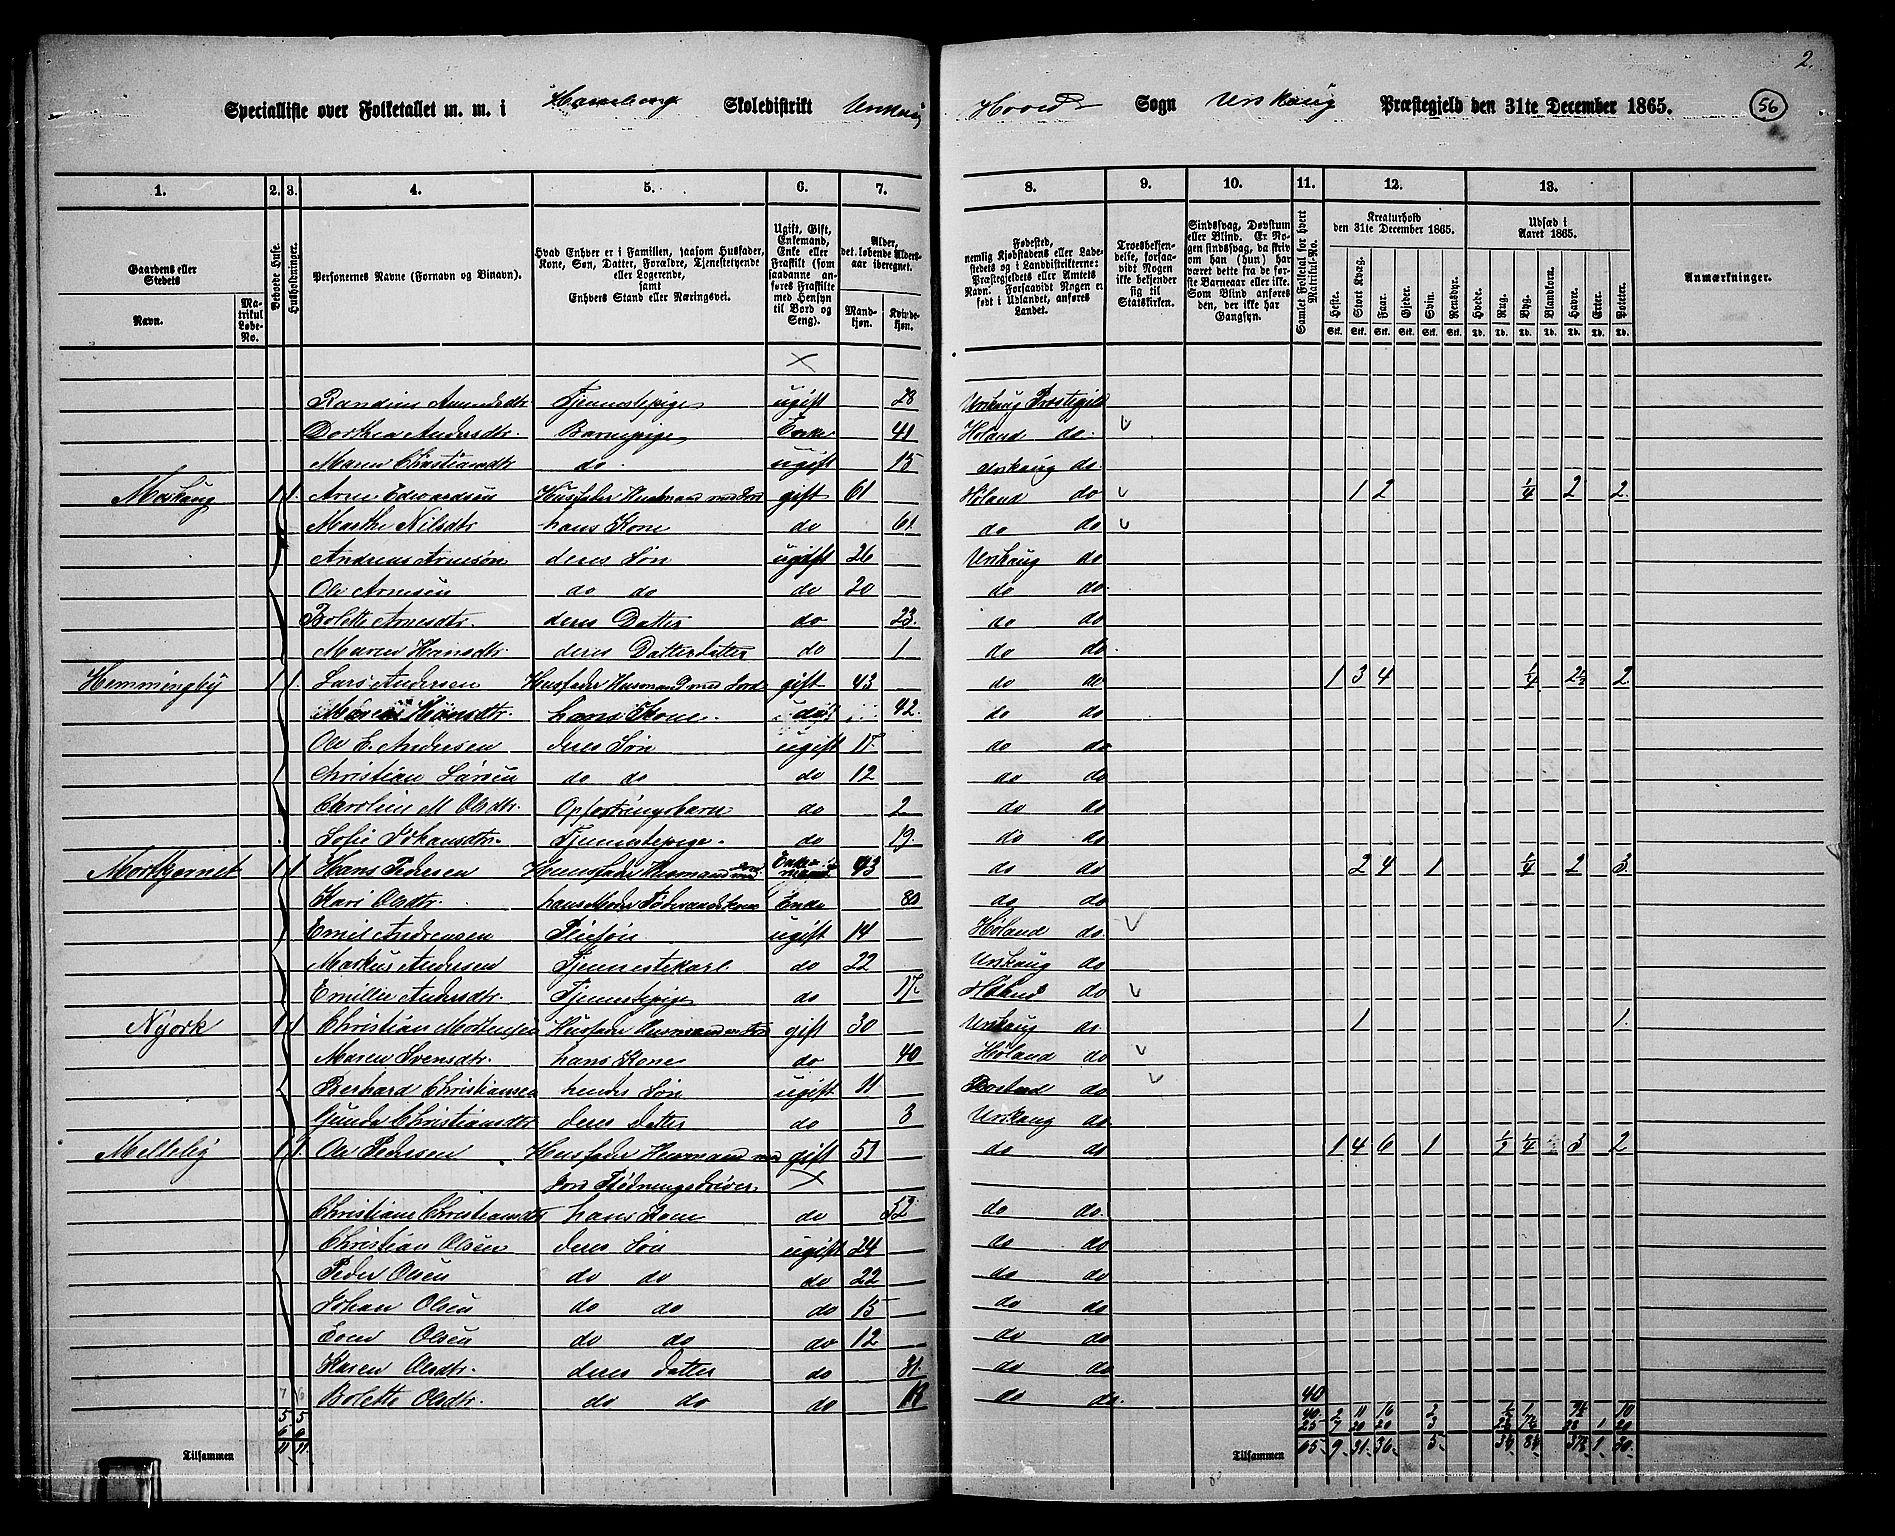 2.
Specialliste over Folketallet m. m. i Skoledistrikt Urskaug Sogn Urskaug Præstegjeld den 31te December 1865. 56
1. 2. 3. 4. 5. 6. 7. 8. 9. 10. 11. 12. 13.
Gaardens eller Stedets
Navn.
Matrikul Løbe-No.
Beboede Huse.
Husholdninger.
Personernes Navne (Fornavn og Tilnavn).
Hvad Enhver er i Familien, saasom Husfader, Kone, Søn, Datter, Forældre, Tjenestetyende eller Logerende, samt Enhvers Stand eller Næringsvei.
Ugift, Gift, Enkemand, Enke eller Fraskilt (som saadanne anføres Fraskilte med Hensyn til Bord og Seng).
Alder, det løbende Aldersaar iberegnet.
Mandkjøn. Kvindekjøn.
Fødested, nemlig Kjøbstadens eller Ladestedets og i Landdistrikterne: Præstegjeldets eller Amtets Navn. Forsaavidt Nogen er født i Udlandet, anføres Landet.
Troesbekjendelse, forsaavidt Nogen ikke bekjender sig til Statskirken.
Sindssvag, Døvstum eller Blind. Er Nogen sindssvag, da skrives om han (hun) har været dette fra de første Barneaar eller ikke. Som Blind anføres den, der ikke har Gangsyn.
Samlet Folketal for hvert Matrikul-No.
Kreaturhold den 31te December 1865.
Heste. Stort Kvæg. Faar. Gjeder. Svin. Rensdyr.
Udsæd i Aaret 1865.
Hvede. Rug. Byg. Blandkorn. Havre. Erter. Poteter.
Anmærkninger.
Randine Tjenestepige ugift 28 Urskaug Præstegjeld
Dorthea Andersdtr. Barnepige Enke 41 Høland do.
Maren Christiansdtr do. ugift 15 Urskaug do.
1 1. Arne Edvardsen Husfader Husmand med Jord gift 61 Høland do 1 2 1/4 2 2.
Marthe Nilsdtr hans Kone do 61. do do
Andreas Arnesøn deres Søn ugift 26 Urskaug do
Ole Arnesen do do do 20 do do.
Bolette Arnesdtr. deres Datter do 23. do do
Maren Hansdtr. deres Datterdatter do 1 do do.
Hemmingby 1 1. Lars Andersen Husfader Husmand med Jord gift 43 do do 1 3 4 1/4 2 1/2 2
Maren Hansdtr. hans Kone. do 42. do do
Ole E. Andersen deres Søn ugift 17. do do
Christian Larsen do do do 12 do do
Caroline M Olsdtr. Opfostringsbarn do 2 do do
Sofie Johansdtr. Tjenestepige. do 19. do do
Mortkjernet 1 1 Hans Pedersen Huusfader Husmand med Jord Enkemand 43 do do 2 4 1 1/4 2 3.
Kari Olsdtr. hans Moder Enke 80 do do
Emil Andreasen Pleiesøn ugift 14 Høland do.
Markus Andersen Tjenestekarl. do 22 Urskaug do
Emilie Andersdtr. Tjenestepige do 17. Høland do
Nyork 1 1 Christian Mortensen Husfader Husmand gift 30 Urskaug do 1 1.
Maren Svensdtr. hans Kone do 40 Høland do
Berhard Christiansen hendes Søn ugift 11 do
Gunda Christiansdtr deres datter do 3 Urskaug do
Meltelig 1 1. Ole Pedersen Husfader Husmand med gift 51 do do 1 4 6 1 1/2 1/4 3 2
Jord Fløtningsdriver
Christiane Christiansdtr hans Kone do 52 do do.
Christian Olsen deres Søn ugift 24 do do
Peder Olsen do do do 22 do do
Johan Olsen do do do 15 do do
Even Olsen do do do 12 do do
Karen Olsdtr. deres datter do do do
Bolette Olsdtr. do do do 18 do do. 40
Tilsammen 11 11. Tilsammen 65 9. 21 36 5. 1.